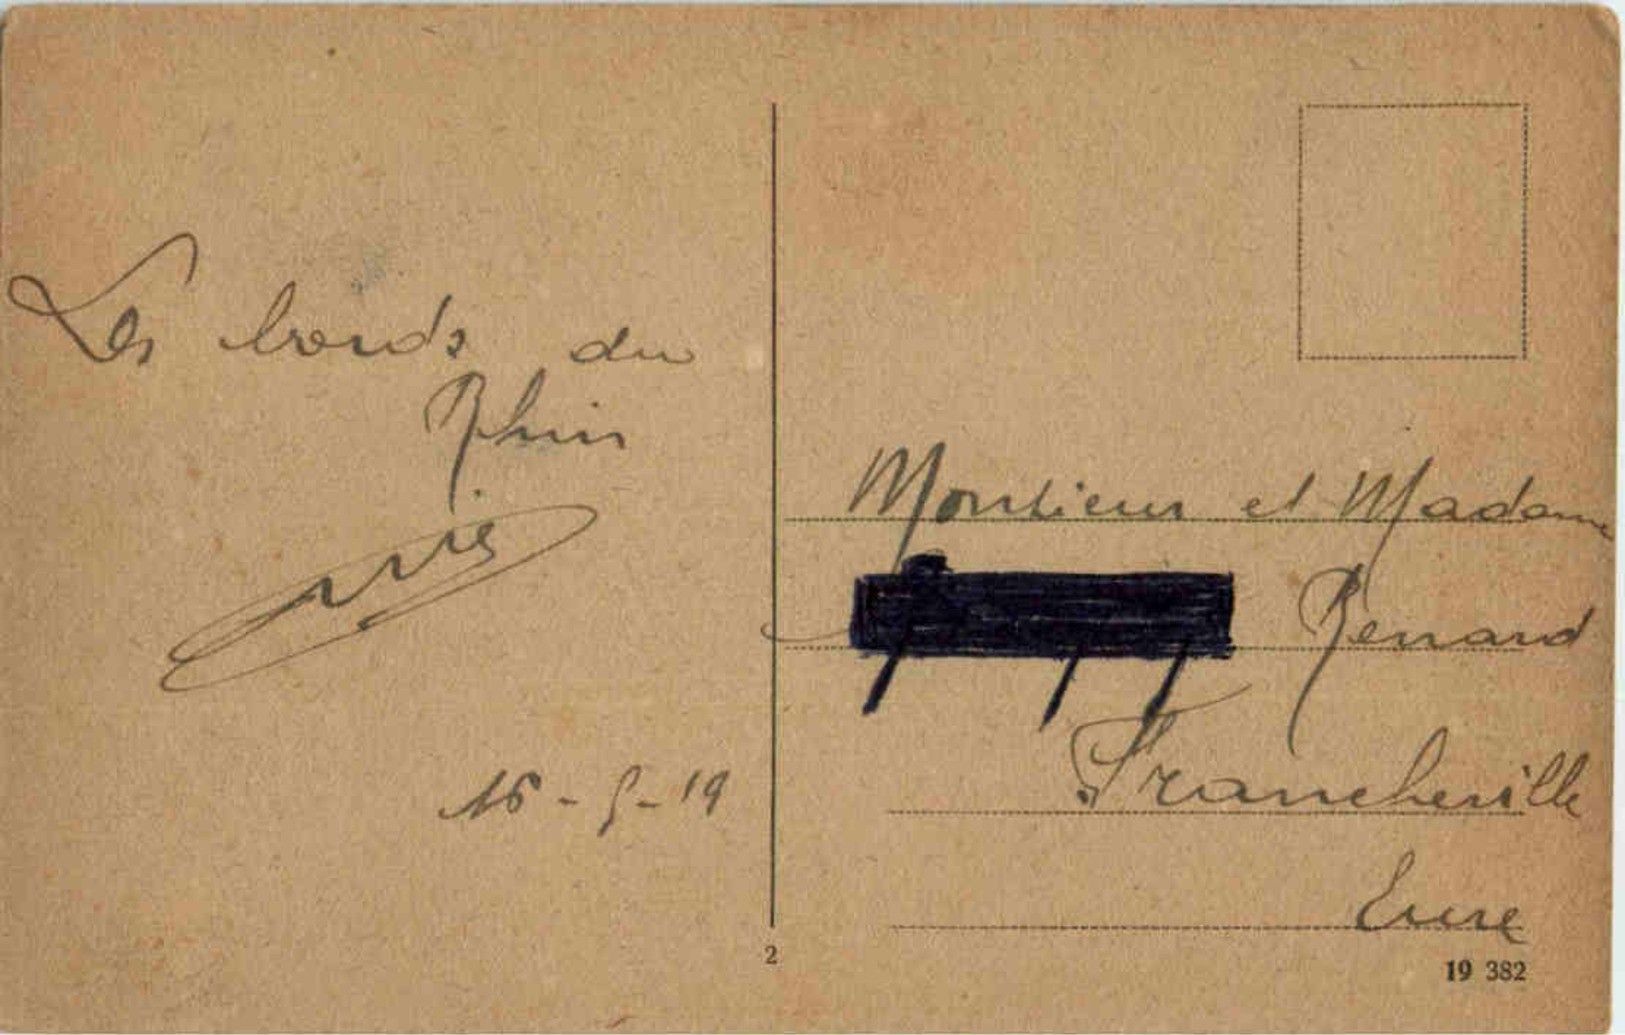 Les bords du
Rhin
16-5-19
Monsieur et Madame
Renard
Francheville
Eure
2
19 382